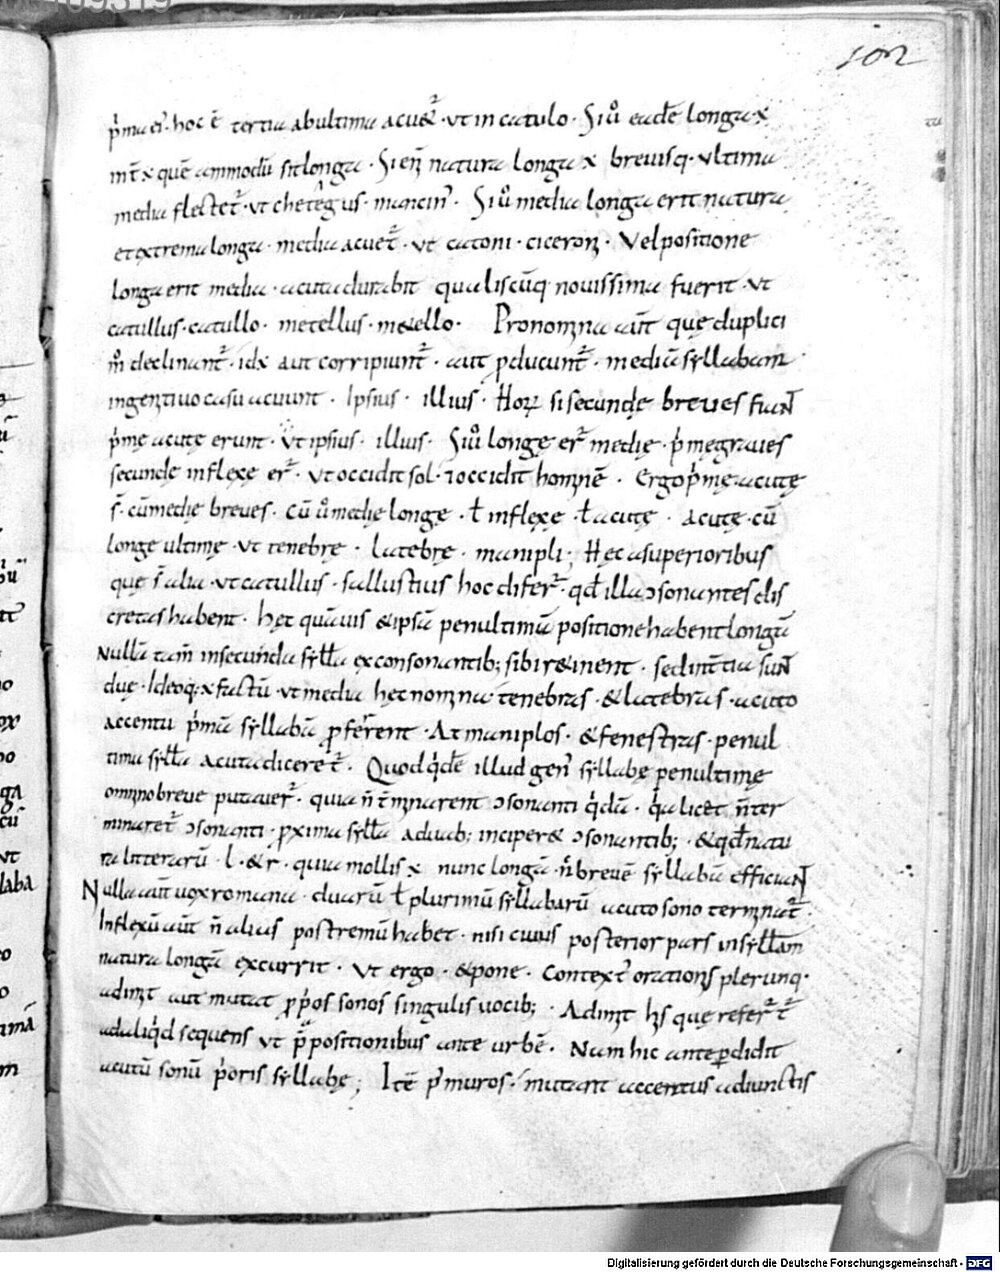 102
p̍ma er̄· hoc ē tertia abultima acuet᷑ · vt in catulo · Siu̐ eadē longa x
mt̄ x quē ammodū sit longa · Si eni natura longa x breuisq· vltima
media flectet᷑ · vt chetegus · mancin᷒ · Siu̐ media longa erit natura
et extrema longa · media acuet᷑ · vt catoni · ciceroni · Vel positione
longa erit media · acuta durabit qualiscūq nouissima fuerit · vt
catullus · catullo · metellus · metello · Pronomina aūt quę duplici
m̊ declinant᷑ · idx aut corripiunt᷑ · aut ꝓducunt᷑ · mediā syllabam ·
in genitiuo casu acuunt · Ipsius · illius · Hoꝝ si secundę breues fiant
p̍mę acutę erunt · Vt ipsius · illius · Siu̐ longę er᷑ medię · p̍mę graues
secundę inflexę er᷑ · vt occidit sol · ⁊ occidit hominē · Ergo p̍mę acutę
s̄ · cū medię breues · Cū u̐ medię longę · ł inflexę · ł acutę · Acutę · cū
longę ultimę · vt tenebrę · latebrę · manipli; Hęc a superioribus
quę s̄ alia · vt catullus · sallustius hoc difer᷑ · qđ illa ɔsonantes dis
cretas habent · hęc quāuis & ipsā penultimā positione habent longā
Nullā tam̄ in secunda syłła ex consonantib; sibi retinent · sed in t̄tia sunt
duę · Ideoq; x factū · vt media hęc nomina tenebras · & latebras · acuto
accentu p̍mā syllabā ꝓferent · At maniplos · & fenestras · penul
tima syłła acuta diceret᷑ · Quod q̍dē illud gen᷒ syllabę penultimę
omnino breue putauer᷑ · quia n̄ t̄minarent ɔsonanti q̍dā · q̍a licet n̄ ter
minaret᷑ ɔsonanti · ꝓxima syłła a duab; inciperet ɔsonantib; · & qđ natu
ra litterarū · l · & r · quia mollis x nunc longā · n̍ breuē syllabā efficiant
Nulla aūt uox romana · duarū ł plurimū syllabarū acuto sono terminat᷑ ·
Inflexū aūt n̄ alius postremū habet · nisi cuius posterior pars in syłłam
natura longā excurrit · Vt ergo · & pone · Context᷒ orationis plerunq·
adimit aut mutat ꝓp̍os sonos singulis uocib; · Adimit his quę refer᷑t᷑
ad aliq̍d sequens vt p̄positionibus ante urbē · Nam hic ante ꝑdidit
acutū sonū p̍oris syllabę; Itē p᷒ muros · mutant accentus adiunctis
Digitalisierung gefördert durch die Deutsche Forschungsgemeinschaft - DFG